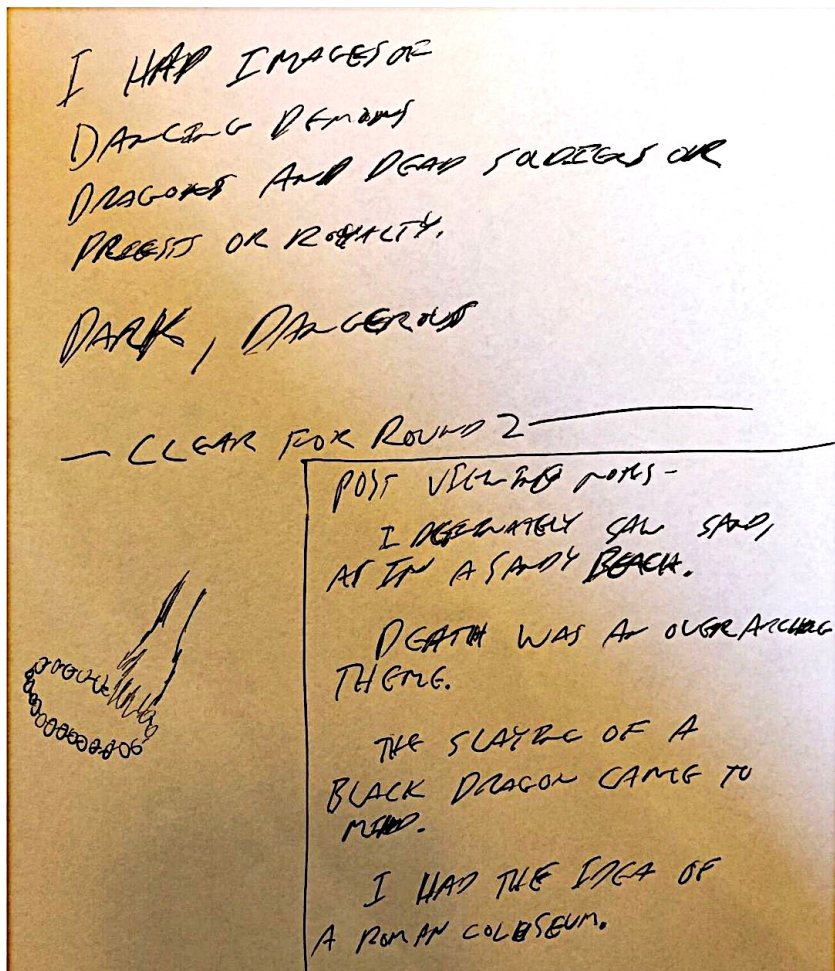 I HAD IMAGES OF
DANCING DEMONS
DRAGONS AND DEAD SOLDIERS OR
PRIESTS OR ROYALTY.
DARK, DANGEROUS
— CLEAR FOR ROUND 2 —
POST VIEWING NOTES -
I DEFINATELY SAW SAND,
AS IN A SANDY BEACH.
DEATH WAS AN OVERARCHING
THEME.
THE SLAYING OF A
BLACK DRAGON CAME TO
MIND.
I HAD THE IDEA OF
A ROMAN COLOSEUM.